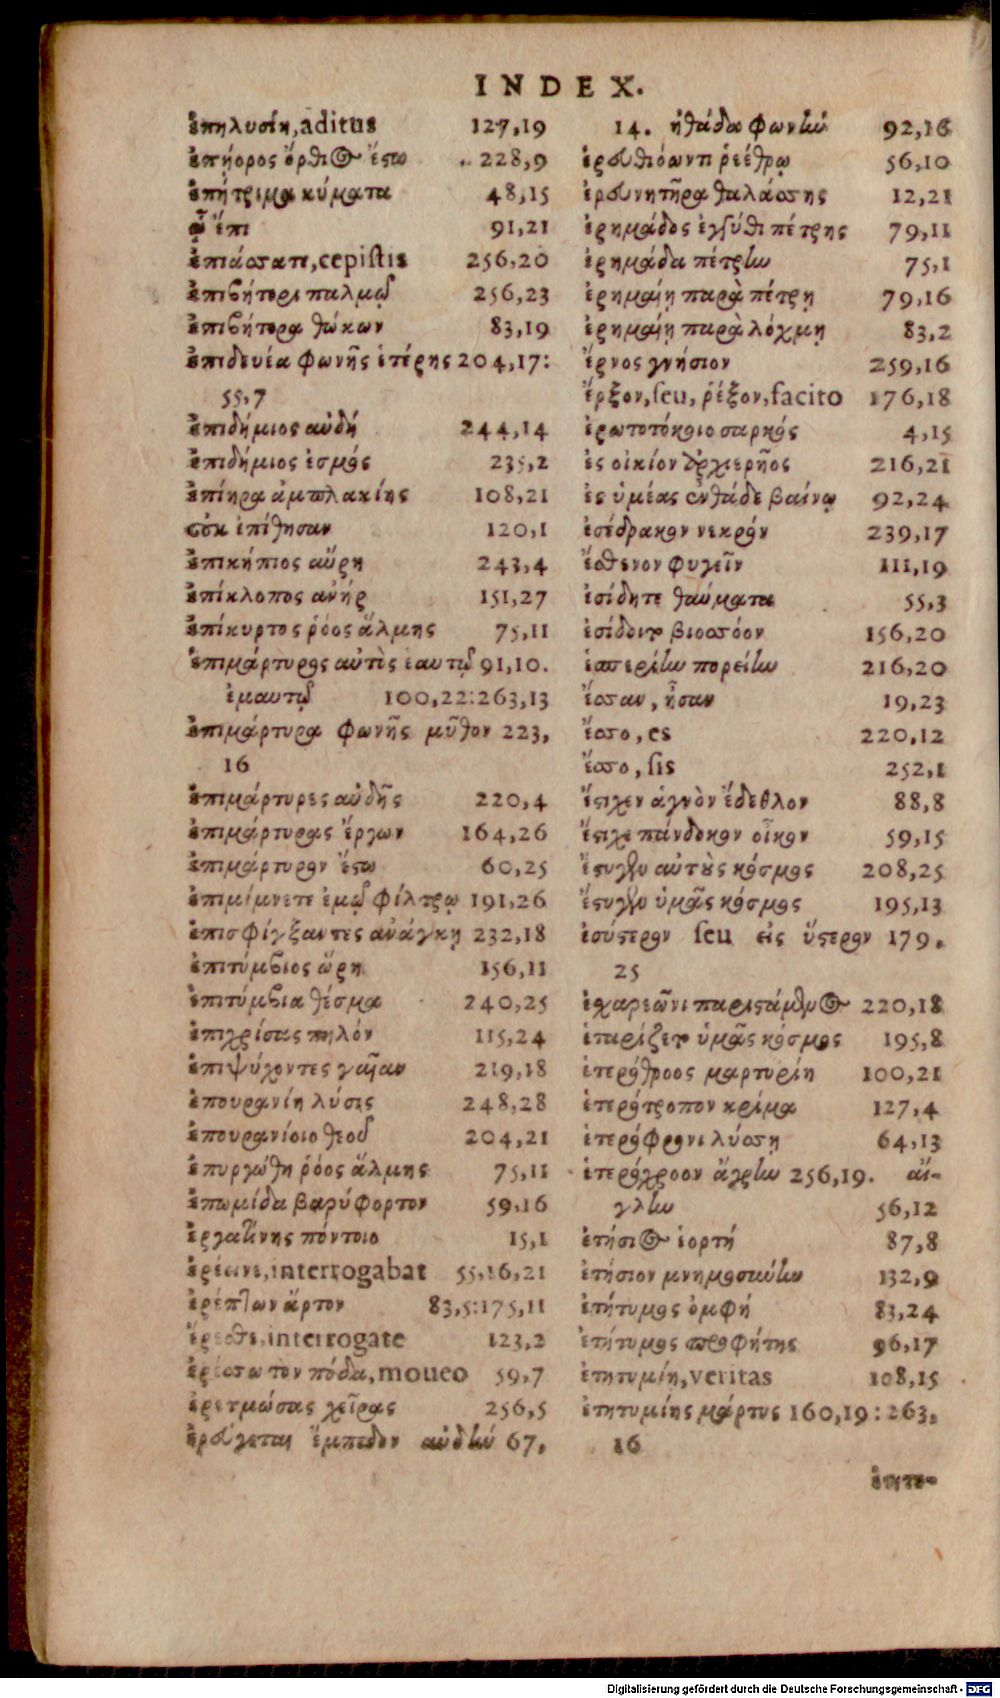 INDEX.
ἐπηλυσίη, aditus 127,19
ἐπήορος ὄρθιος ἔστω 228,9
ἐπήτριμα κύματα 48,15
ᾧ ἔπι 91,21
ἐπιάσατε, cepistis 256,20
ἐπιβήτορι παλμῷ 256,23
ἐπιβήτορα θώκων 83,19
ἐπιδευέα φωνῆς ἑτέρης 204,17:
55,7
ἐπιδήμιος αὐδή 244,14
ἐπιδήμιος ἑσμός 235,2
ἐπίηρα ἀμπλακίης 108,21
οὐκ ἐπίθησαν 120,1
ἐπικήπιος αὔρη 243,4
ἐπίκλοπος ἀνήρ 151,27
ἐπίκυρτος ῥόος ἅλμης 75,11
ἐπιμάρτυρος αὐτὸς ἑαυτῷ 91,10.
ἐμαυτῷ 100,22:263,13
ἐπιμάρτυρα φωνῆς μῦθον 223,
16
ἐπιμάρτυρες αὐδῆς 220,4
ἐπιμάρτυρας ἔργων 164,26
ἐπιμάρτυρον ἔστω 60,25
ἐπιμίμνετε ἐμῷ φίλτρῳ 191,26
ἐπισφίγξαντες ἀνάγκῃ 232,18
ἐπιτύμβιος ὥρη 156,11
ἐπιτύμβια θέσμα 240,25
ἐπιχρίσας πηλόν 115,24
ἐπιψύχοντες γαῖαν 219,18
ἐπουρανίη λύσις 248,28
ἐπουρανίοιο θεοῦ 204,21
ἐπυργώθη ῥόος ἅλμης 75,11
ἐπωμίδα βαρύφορτον 59,16
ἐργατίνης πόντοιο 15,1
ἐρέεινε, interrogabat 55,16,21
ἐρέπτων ἄρτον 83,5:175,11
ἔρεσθε, interrogate 123,2
ἐρέσσω τὸν πόδα, moueo 59,7
ἐρετμώσας χεῖρας 256,5
ἐρεύγεται ἔμπεδον αὐδήν 67,
14. ἠθάδα φωνήν 92,16
ἐρευθιόωντι ῥεέθρῳ 56,10
ἐρευνητῆρα θαλάσσης 12,21
ἐρημάδος ἐγγύθι πέτρης 79,11
ἐρημάδα πέτρην 75,1
ἐρημαίῃ παρὰ πέτρῃ 79,16
ἐρημαίῃ παρὰ λόχμῃ 83,2
ἔρνος γνήσιον 259,16
ἔρξον, seu, ῥέξον, facito 176,18
ἐρωτοτόκοιο σαρκός 4,15
ἐς οἰκίον ἀρχιερῆος 216,21
ἐς ὑμέας ἐνθάδε βαίνω 92,24
ἐσέδρακον νεκρόν 239,17
ἔσθενον φυγεῖν 111,19
ἐσίδητε θαύματα 55,3
ἐσίδοιτο βιοσσόον 156,20
ἑσπερίην πορείην 216,20
ἔσσαν, ἦσαν 19,23
ἔσσο, es 220,12
ἔσσο, sis 252,1
ἔστιχεν ἁγνὸν ἔδεθλον 88,8
ἔστιχε πάνδοκον οἶκον 59,15
ἔστυγεν αὐτοὺς κόσμος 208,25
ἔστυγεν ὑμᾶς κόσμος 195,13
ἐσύστερον seu εἰς ὕστερον 179.
25
ἐσχαρεῶνι παριστάμενος 220,18
ἑταρίζετο ὑμᾶς κόσμος 195,8
ἑτερόθροος μαρτυρίη 100,21
ἑτερότροπον κρίμα 127,4
ἑτερόφρονι λύσσῃ 64,13
ἑτερόχροον ἄγρην 256,19. αἴ-
γλην 56,12
ἐτήσιος ἑορτή 87,8
ἐτήσιον μνημοσύνην 132,9
ἐτήτυμος ὀμφή 83,24
ἐτήτυμος προφήτης 96,17
ἐτητυμίη, veritas 108,15
ἐτητυμίης μάρτυς 160,19:263.
16
ἐτητυ-
Digitalisierung gefördert durch die Deutsche Forschungsgemeinschaft - DFG